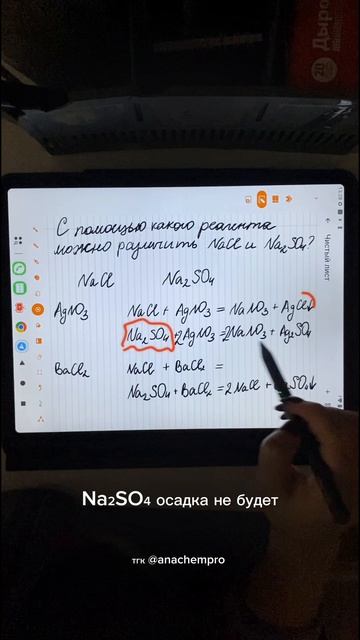 Дыро
20
Чистый лист
С помощью какого реагента
можно различить NaCl и Na₂SO₄?
NaCl Na₂SO₄
AgNO₃ NaCl + AgNO₃ = NaNO₃ + AgCl↓
Na₂SO₄ + 2AgNO₃ = 2NaNO₃ + Ag₂SO₄
BaCl₂ NaCl + BaCl₂ =
Na₂SO₄ + BaCl₂ = 2NaCl + SO₄↓
Na₂SO₄ осадка не будет
тгк @anachempro